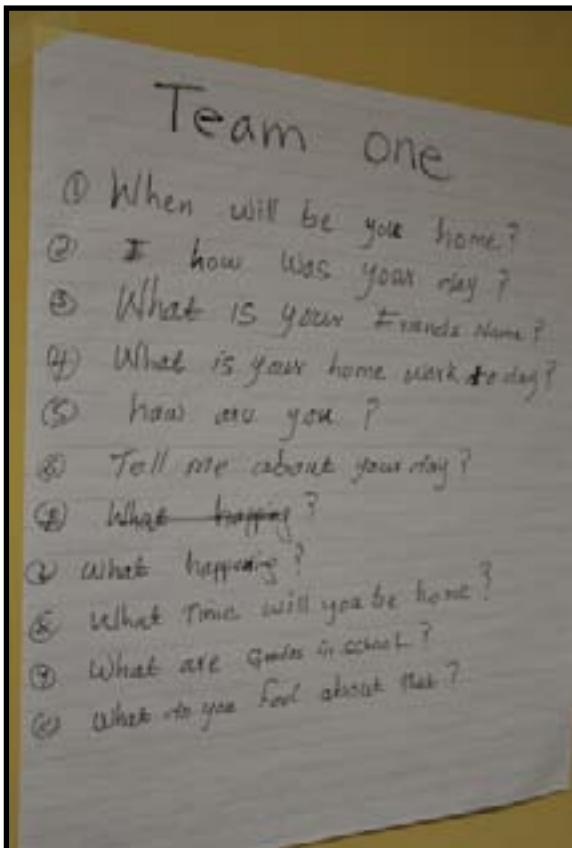 Team one
① When will be you home?
② I how was your day?
③ What is your Friends Name?
④ What is your home work today?
⑤ how are you?
⑥ Tell me about your day?
What happing?
What happening?
⑧ What Time will you be home?
⑨ What are Grades in school?
What do you feel about that?